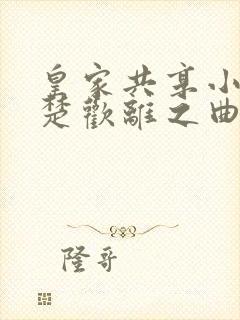 皇家共享小
楚歡離之曲
隆哥